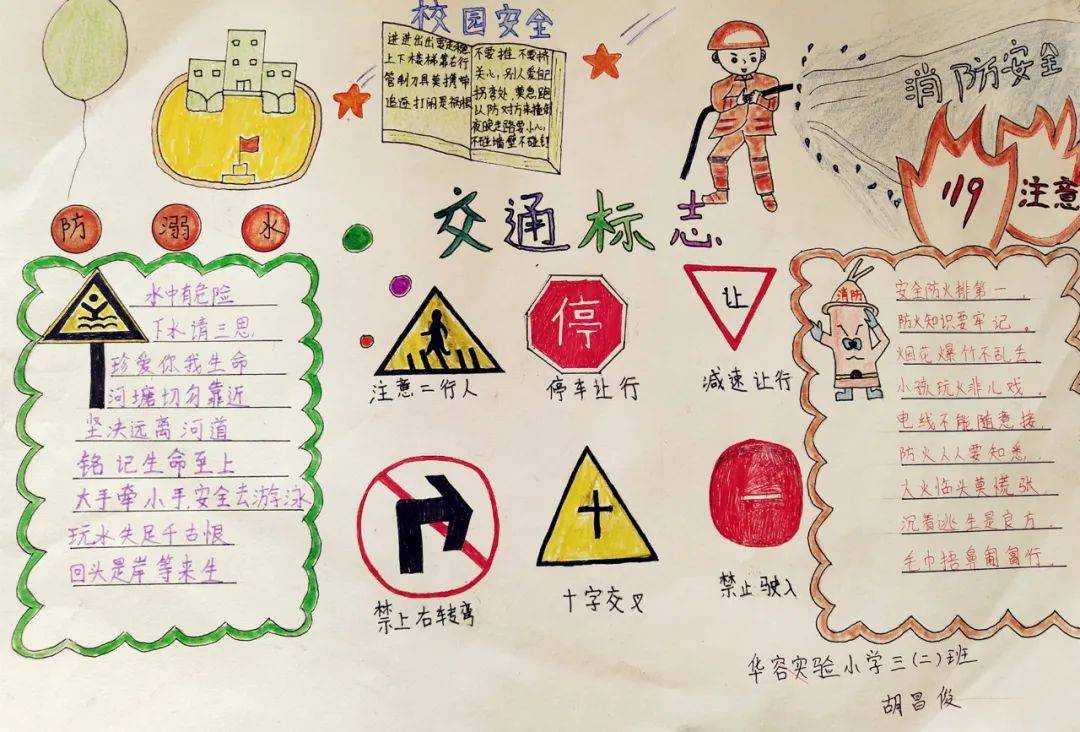 校园安全
进进出出要走稳
上下楼梯靠右行
管制刀具莫携带
追逐打闹是祸根
不要推、不要挤
关心，别人爱自己
拐弯处、莫急跑
以防对方来撞到
夜晚走路要小心，
不碰墙壁不碰钉
消防安全
119
注意
防溺水
水中有危险
下水请三思
珍爱你我生命
河塘切勿靠近
坚决远离河道
铭记生命至上
大手牵小手,安全去游泳
玩水失足千古恨
回头是岸等来生
交通标志
注意二行人
停
停车让行
让
减速让行
禁止右转弯
十字交叉
禁止驶入
消防
安全防火排第一，
防火知识要牢记。
烟花爆竹不乱丢，
小孩玩火非儿戏，
电线不能随意接，
防火人人要知悉，
大火临头莫慌张，
沉着逃生是良方，
毛巾捂鼻匍匐行，
华容实验小学三(二)班
胡昌俊